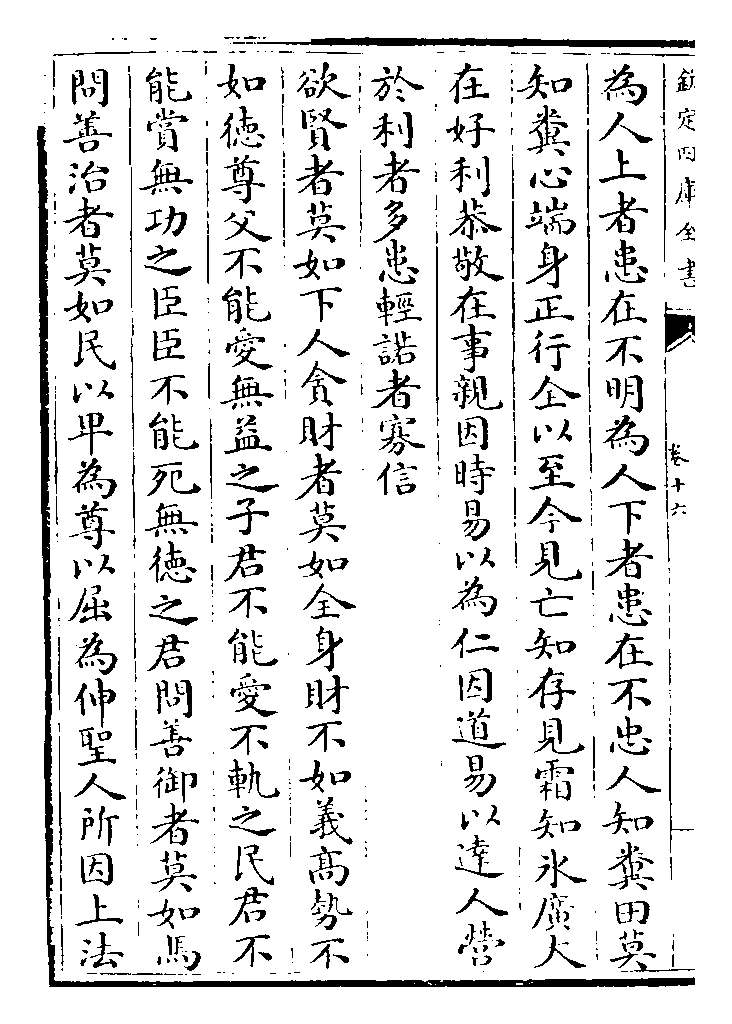 欽定四庫全書
卷十六
為人上者患在不明為人下者患在不忠人知糞田莫
知糞心端身正行全以至今見亡知存見霜知氷廣大
在好利恭敬在事親因時易以為仁因道易以達人營
於利者多患輕諾者寡信
欲賢者莫如下人貪財者莫如全身財不如義髙勢不
如徳尊父不能愛無益之子君不能愛不軌之民君不
能賞無功之臣臣不能死無徳之君問善御者莫如馬
問善治者莫如民以卑為尊以屈為伸聖人所因上法